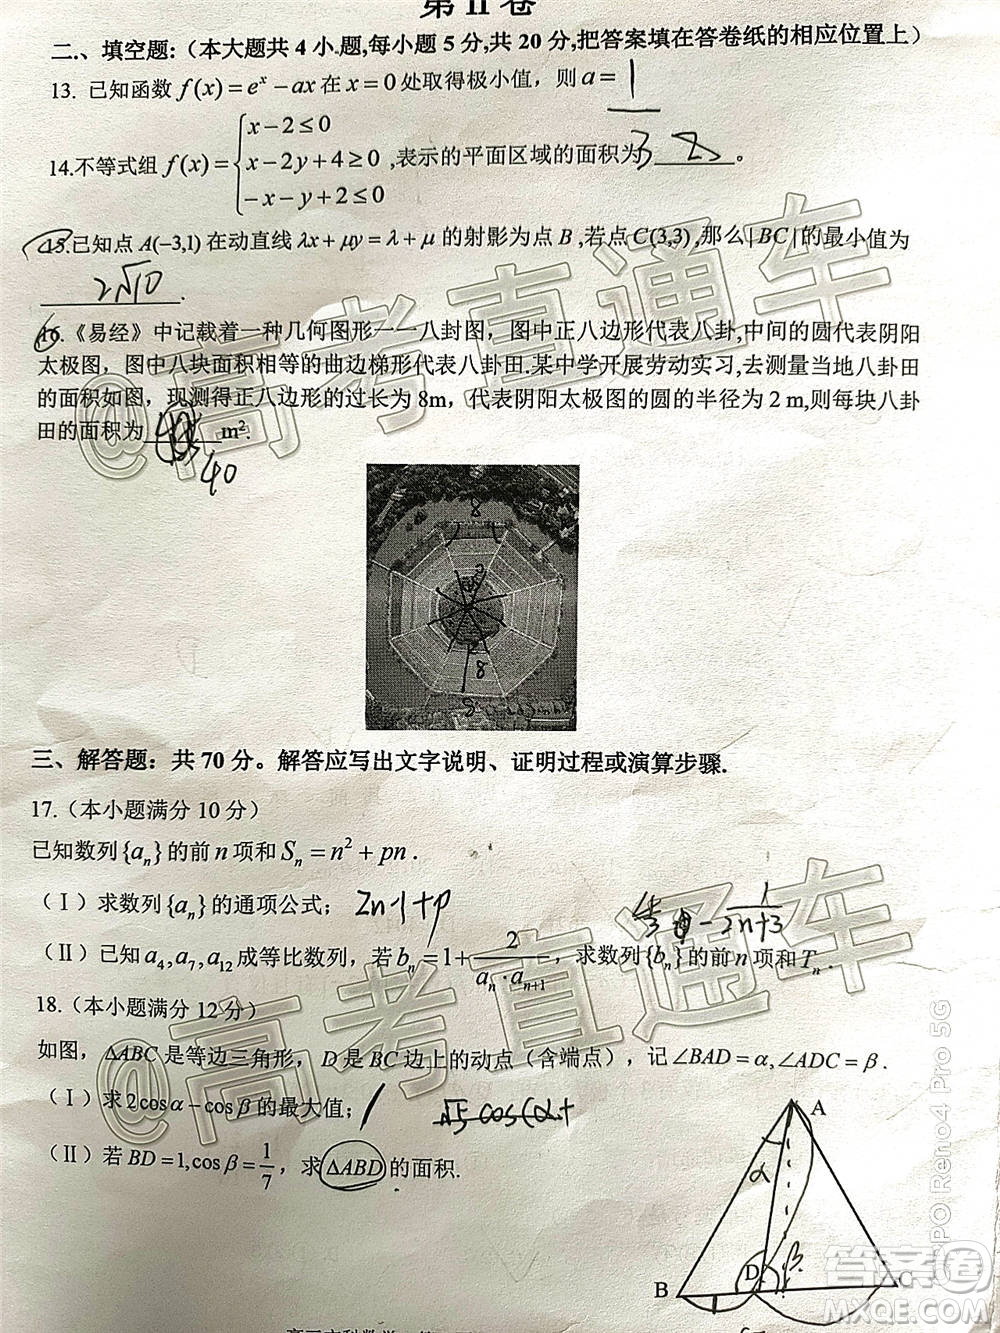 第 II 卷
二、填空题:(本大题共 4 小.题,每小题 5 分,共 20 分,把答案填在答卷纸的相应位置上)
13. 已知函数 f(x)=e^x-ax 在 x=0 处取得极小值，则 a= 1
14.不等式组 f(x)={x-2≤0
x-2y+4≥0 ,表示的平面区域的面积为 3 。
-x-y+2≤0
15.已知点 A(-3,1) 在动直线 λx+μy=λ+μ 的射影为点 B ,若点 C(3,3) ,那么|BC|的最小值为
2√10 .
16.《易经》中记载着一种几何图形一一八封图，图中正八边形代表八卦,中间的圆代表阴阳
太极图，图中八块面积相等的曲边梯形代表八卦田.某中学开展劳动实习,去测量当地八卦田
的面积如图，现测得正八边形的过长为 8m，代表阴阳太极图的圆的半径为 2 m,则每块八卦
田的面积为 m².
40
8
2
8
三、解答题：共 70 分。解答应写出文字说明、证明过程或演算步骤.
17.（本小题满分 10 分）
已知数列{a_n}的前 n 项和 S_n=n²+pn .
（Ⅰ）求数列{a_n}的通项公式；2n-1+p
1/(2n+3)
（Ⅱ）已知 a_4,a_7,a_12 成等比数列，若 b_n=1+2/(a_n·a_{n+1})，求数列{b_n}的前 n 项和 T_n .
18.（本小题满分 12 分）
如图，ΔABC 是等边三角形，D 是 BC 边上的动点（含端点），记 ∠BAD=α,∠ADC=β .
（Ⅰ）求 2cosα-cosβ 的最大值； √3 cos(α+
（Ⅱ）若 BD=1,cosβ=1/7，求 ΔABD 的面积.
A
α
B
D
β
C
1
@高考直通车
@高考直通车
OPPO Reno4 Pro 5G
答案圈
MXQE.COM